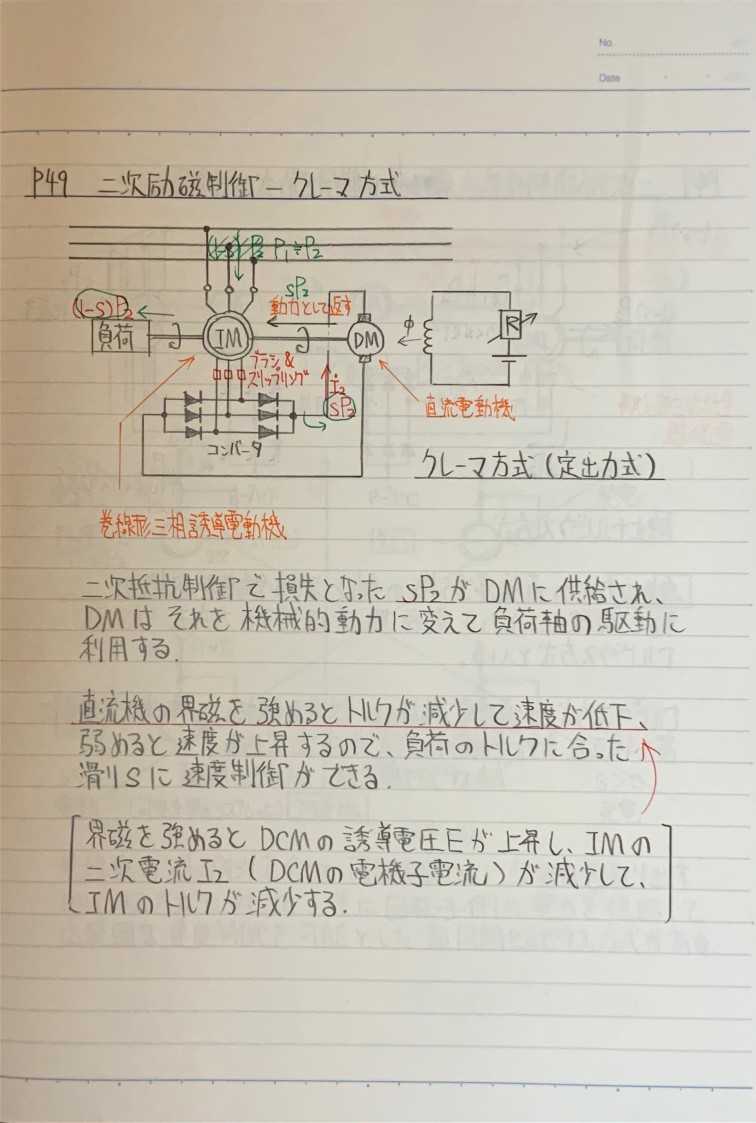 No.
Date
P49 二次励磁制御 – クレーマ方式
P₂ P₁≒P₂
sP₂
(1-S)P₂
動力として返す
負荷
IM
DM
φ
R
ブラシ&
スリップリング
I₂
sP₂
直流電動機
コンバータ
クレーマ方式(定出力式)
巻線形三相誘導電動機
二次抵抗制御で損失となった sP₂がDMに供給され、
DMはそれを機械的動力に変えて負荷軸の駆動に
利用する.
直流機の界磁を強めるとトルクが減少して速度が低下、
弱めると速度が上昇するので、負荷のトルクに合った
滑りSに速度制御ができる.
界磁を強めるとDCMの誘導電圧Eが上昇し、IMの
二次電流I₂(DCMの電機子電流)が減少して、
IMのトルクが減少する.